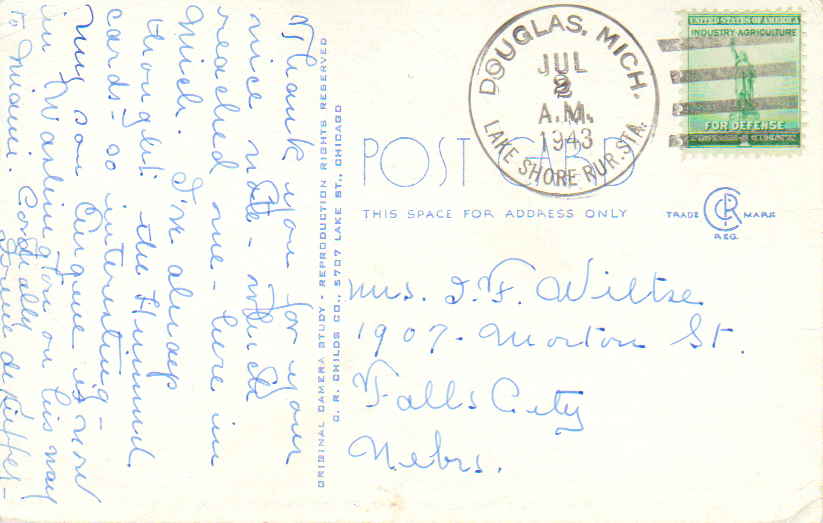 Thank you for your
nice note - which
reached me - here in
Mich. I've always
thought the Hummel
cards - so interesting -
My son Eugene is now
in Washington on his way
to Miami. Cordially
ORIGINAL CAMERA STUDY - REPRODUCTION RIGHTS RESERVED
C. R. CHILDS CO., 5707 LAKE ST., CHICAGO
DOUGLAS, MICH.
JUL
2
A.M.
1943
LAKE SHORE RUR. STA.
UNITED STATES OF AMERICA
INDUSTRY AGRICULTURE
FOR DEFENSE
POST CARD
THIS SPACE FOR ADDRESS ONLY
TRADE CRC MARK
REG.
Mrs. I. F. Wiltse
1907 - Morton St.
Falls City
Nebr.